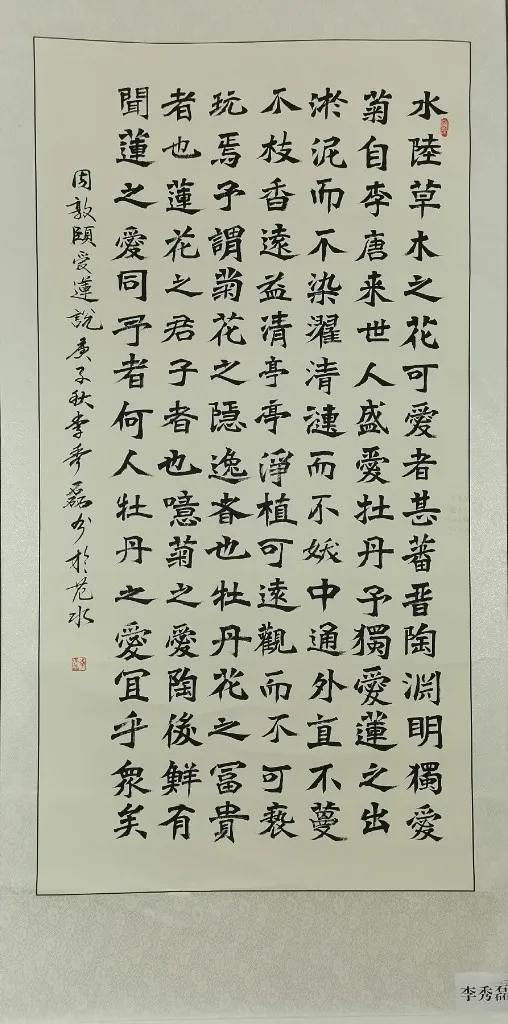 水陸草木之花可愛者甚蕃晋陶渊明獨愛
菊自李唐来世人盛愛牡丹予獨愛蓮之出
淤泥而不染濯清漣而不妖中通外直不蔓
不枝香遠益清亭亭淨植可遠觀而不可褻
玩焉予謂菊花之隱逸者也牡丹花之冨貴
者也蓮花之君子者也噫菊之愛陶後鮮有
聞蓮之愛同予者何人牡丹之愛宜乎衆矣
周敦頤爱蓮說庚子秋李秀磊书於范水
李秀磊